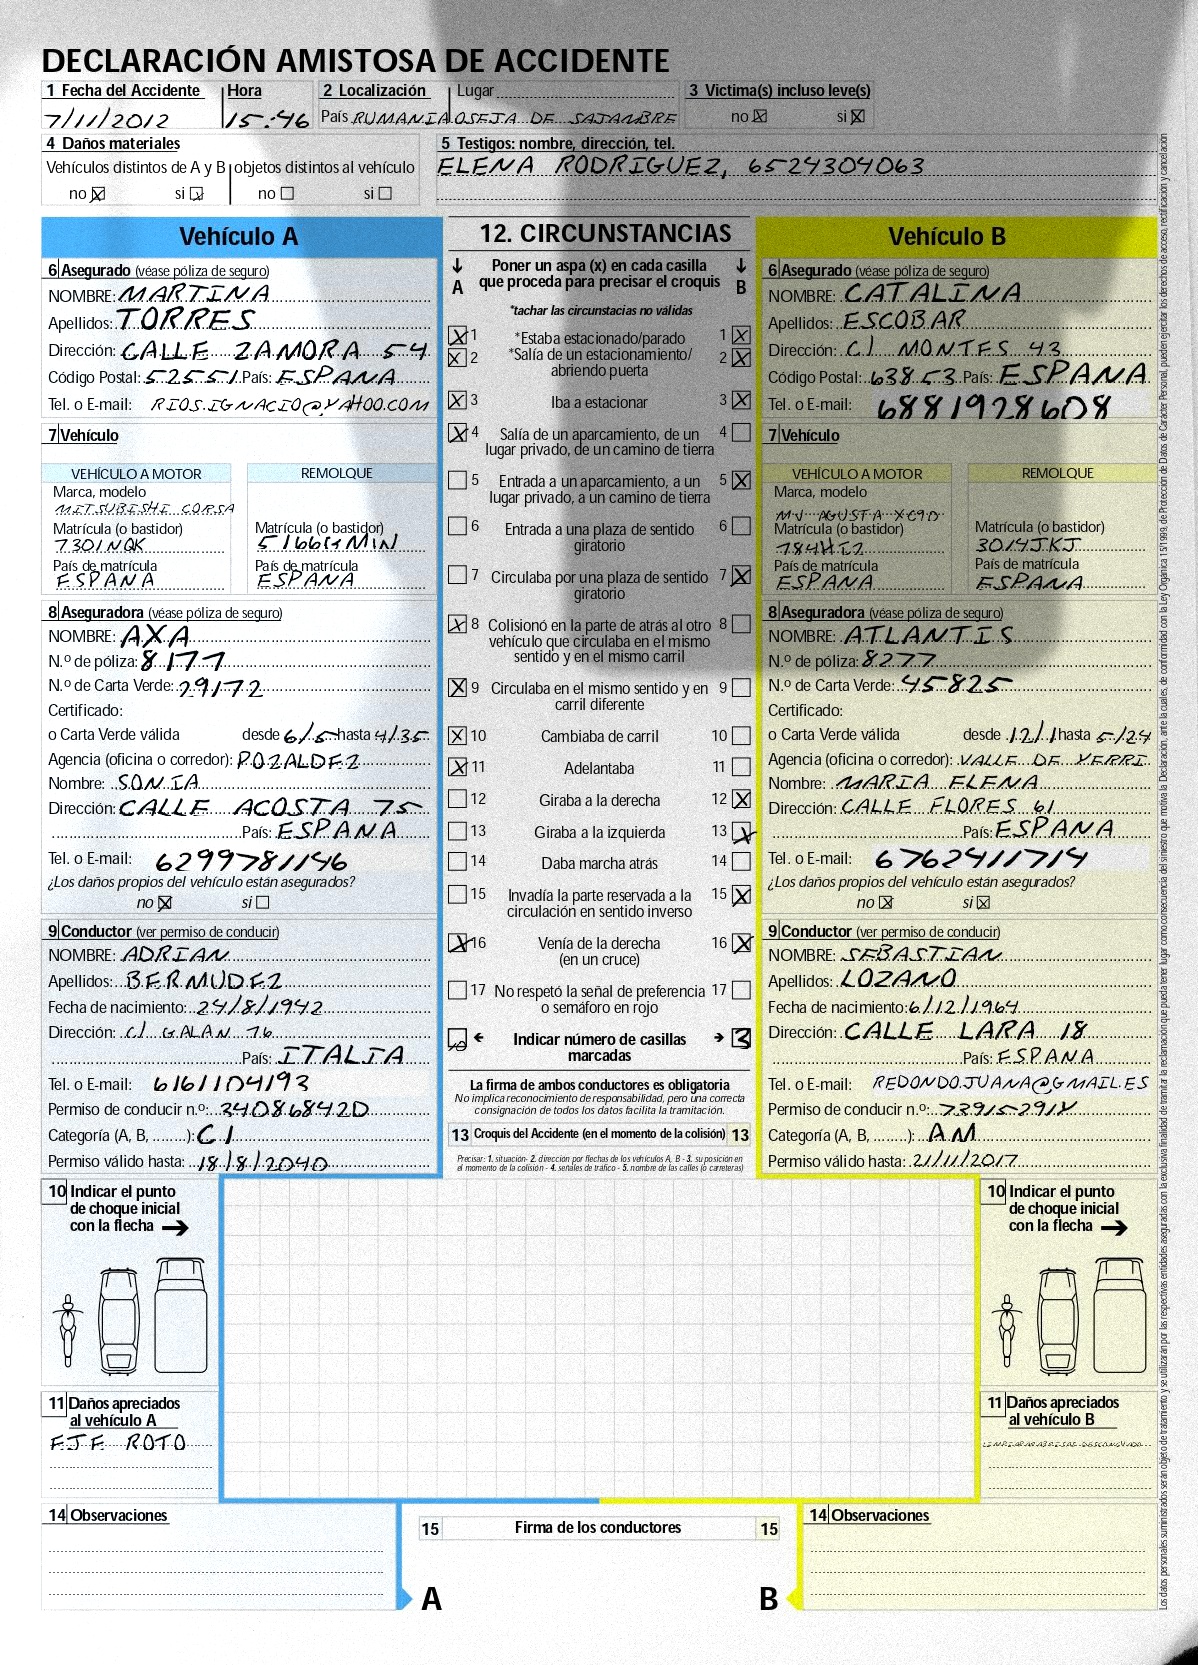 DECLARACIÓN AMISTOSA DE ACCIDENTE
1 Fecha del Accidente Hora 2 Localización Lugar 3 Victima(s) incluso leve(s)
7/11/2012 15:46 País RUMANIA OSEJA DE SAJAMBRE no si
4 Daños materiales 5 Testigos: nombre, dirección, tel.
Vehículos distintos de A y B objetos distintos al vehículo ELENA RODRIGUEZ, 6524304063
no si no si
Vehículo A 12. CIRCUNSTANCIAS Vehículo B
6 Asegurado (véase póliza de seguro)
NOMBRE: MARTINA
Apellidos: TORRES
Dirección: CALLE ZAMORA 54
Código Postal: 52551 País: ESPAÑA
Tel. o E-mail: RIOS.IGNACIO@YAHOO.COM
7 Vehículo
VEHÍCULO A MOTOR REMOLQUE
Marca, modelo
MITSUBISHI CORSA
Matrícula (o bastidor) Matrícula (o bastidor)
7301NQK 5166GMIN
País de matrícula País de matrícula
ESPAÑA ESPAÑA
8 Aseguradora (véase póliza de seguro)
NOMBRE: AXA
N.º de póliza: 8177
N.º de Carta Verde: 29172
Certificado:
o Carta Verde válida desde 6/5 hasta 4/35
Agencia (oficina o corredor): POZALDEZ
Nombre: SONIA
Dirección: CALLE ACOSTA 75
País: ESPAÑA
Tel. o E-mail: 6299781146
¿Los daños propios del vehículo están asegurados?
no si
9 Conductor (ver permiso de conducir)
NOMBRE: ADRIAN
Apellidos: BERMUDEZ
Fecha de nacimiento: 24/8/1942
Dirección: C/ GALAN 76
País: ITALIA
Tel. o E-mail: 6161104193
Permiso de conducir n.º: 34086842D
Categoría (A, B, ........): C1
Permiso válido hasta: 18/8/2040
A Poner un aspa (x) en cada casilla B
que proceda para precisar el croquis
*tachar las circunstacias no válidas
1 *Estaba estacionado/parado 1
2 *Salía de un estacionamiento/ 2
abriendo puerta
3 Iba a estacionar 3
4 Salía de un aparcamiento, de un 4
lugar privado, de un camino de tierra
5 Entrada a un aparcamiento, a un 5
lugar privado, a un camino de tierra
6 Entrada a una plaza de sentido 6
giratorio
7 Circulaba por una plaza de sentido 7
giratorio
8 Colisionó en la parte de atrás al otro 8
vehículo que circulaba en el mismo
sentido y en el mismo carril
9 Circulaba en el mismo sentido y en 9
carril diferente
10 Cambiaba de carril 10
11 Adelantaba 11
12 Giraba a la derecha 12
13 Giraba a la izquierda 13
14 Daba marcha atrás 14
15 Invadía la parte reservada a la 15
circulación en sentido inverso
16 Venía de la derecha 16
(en un cruce)
17 No respetó la señal de preferencia 17
o semáforo en rojo
10 Indicar número de casillas 3
marcadas
La firma de ambos conductores es obligatoria
No implica reconocimiento de responsabilidad, pero una correcta
consignación de todos los datos facilita la tramitación.
13 Croquis del Accidente (en el momento de la colisión) 13
Precisar: 1. situación- 2. dirección por flechas de los vehículos A, B - 3. su posición en
al momento de la colisión - 4. señales de tráfico - 5. nombre de las calles (o carreteras)
6 Asegurado (véase póliza de seguro)
NOMBRE: CATALINA
Apellidos: ESCOBAR
Dirección: C/ MONTES 43
Código Postal: 63853 País: ESPAÑA
Tel. o E-mail: 6881928608
7 Vehículo
VEHÍCULO A MOTOR REMOLQUE
Marca, modelo
MV AGUSTA XC90
Matrícula (o bastidor) Matrícula (o bastidor)
3014JKJ
País de matrícula País de matrícula
ESPAÑA ESPAÑA
8 Aseguradora (véase póliza de seguro)
NOMBRE: ATLANTIS
N.º de póliza: 8277
N.º de Carta Verde: 45825
Certificado:
o Carta Verde válida desde 12/1 hasta 5/24
Agencia (oficina o corredor): VALLE DE YERRI
Nombre: MARIA ELENA
Dirección: CALLE FLORES 61
País: ESPAÑA
Tel. o E-mail: 6762411714
¿Los daños propios del vehículo están asegurados?
no si
9 Conductor (ver permiso de conducir)
NOMBRE: SEBASTIAN
Apellidos: LOZANO
Fecha de nacimiento: 6/12/1964
Dirección: CALLE LARA 18
País: ESPAÑA
Tel. o E-mail: REDONDOJUANA@GMAIL.ES
Permiso de conducir n.º: 73915291X
Categoría (A, B, ........): AM
Permiso válido hasta: 21/11/2017
10 Indicar el punto
de choque inicial
con la flecha
11 Daños apreciados
al vehículo A
EJE ROTO
14 Observaciones
10 Indicar el punto
de choque inicial
con la flecha
11 Daños apreciados
al vehículo B
LIMPIAPARABRISAS DESCONGUADO
14 Observaciones
15 Firma de los conductores 15
A B
Los datos personales suministrados serán objeto de tratamiento y se utilizarán por las respectivas entidades aseguradas con la exclusiva finalidad de tramitar la reclamación que pueda tener lugar como consecuencia del siniestro que motiva la Declaración, ante la cuales, de conformidad con la Ley Orgánica 15/1999, de Protección de Datos de Carácter Personal, pueden ejercitar los derechos de acceso, rectificación y cancelación